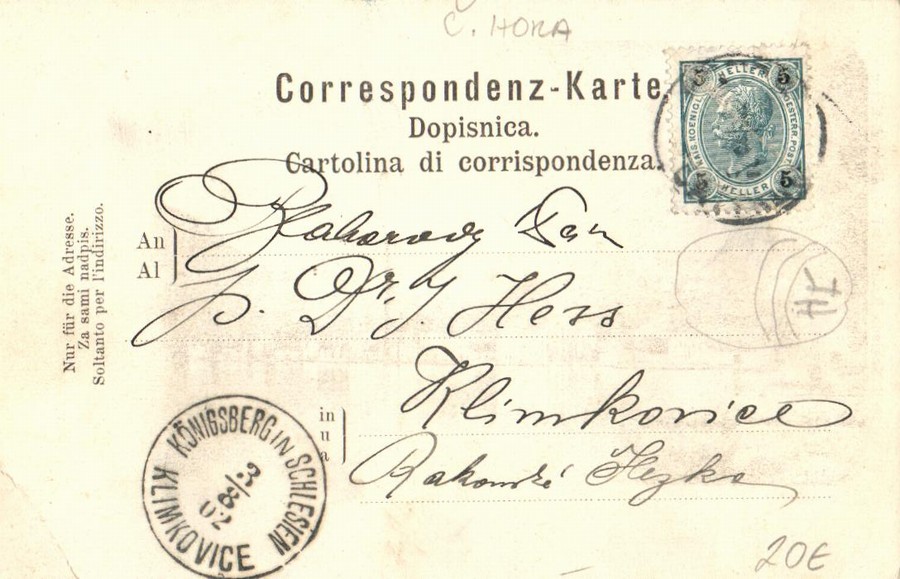 Č. HORA
Correspondenz-Karte.
Dopisnica.
Cartolina di corrispondenza.
5 HELLER 5
KAIS. KOENIGL. OESTERR. POST
5 HELLER 5
Nur für die Adresse.
Za sami nadpis.
Soltanto per l'indirizzo.
An
Al
Pan
p. Dr. J. Hess
in
u
a
Klimkovice
Rakouské Slezko
KÖNIGSBERG IN SCHLESIEN
3/8
02
KLIMKOVICE
20€